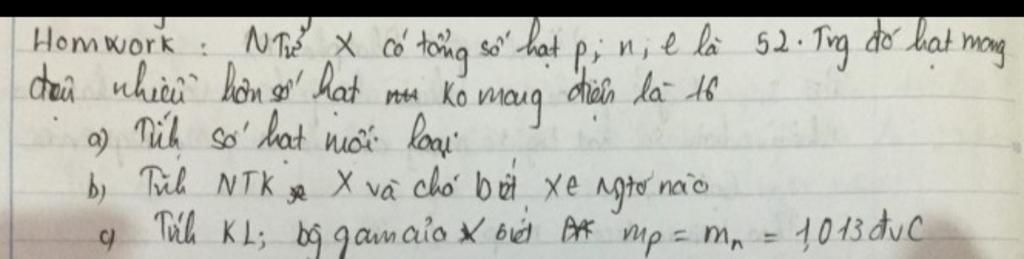 Homwork : NTử X có tổng số hạt p; n; e là 52. Trg đó hạt mang
điện nhiều hơn số hạt ko mang điện là 16
a) Tính số hạt mỗi loại
b) Tính NTK X và cho biết X ngtố nào
c) Tính KL; bg gam của X biết mp = mn = 1,013 đvC